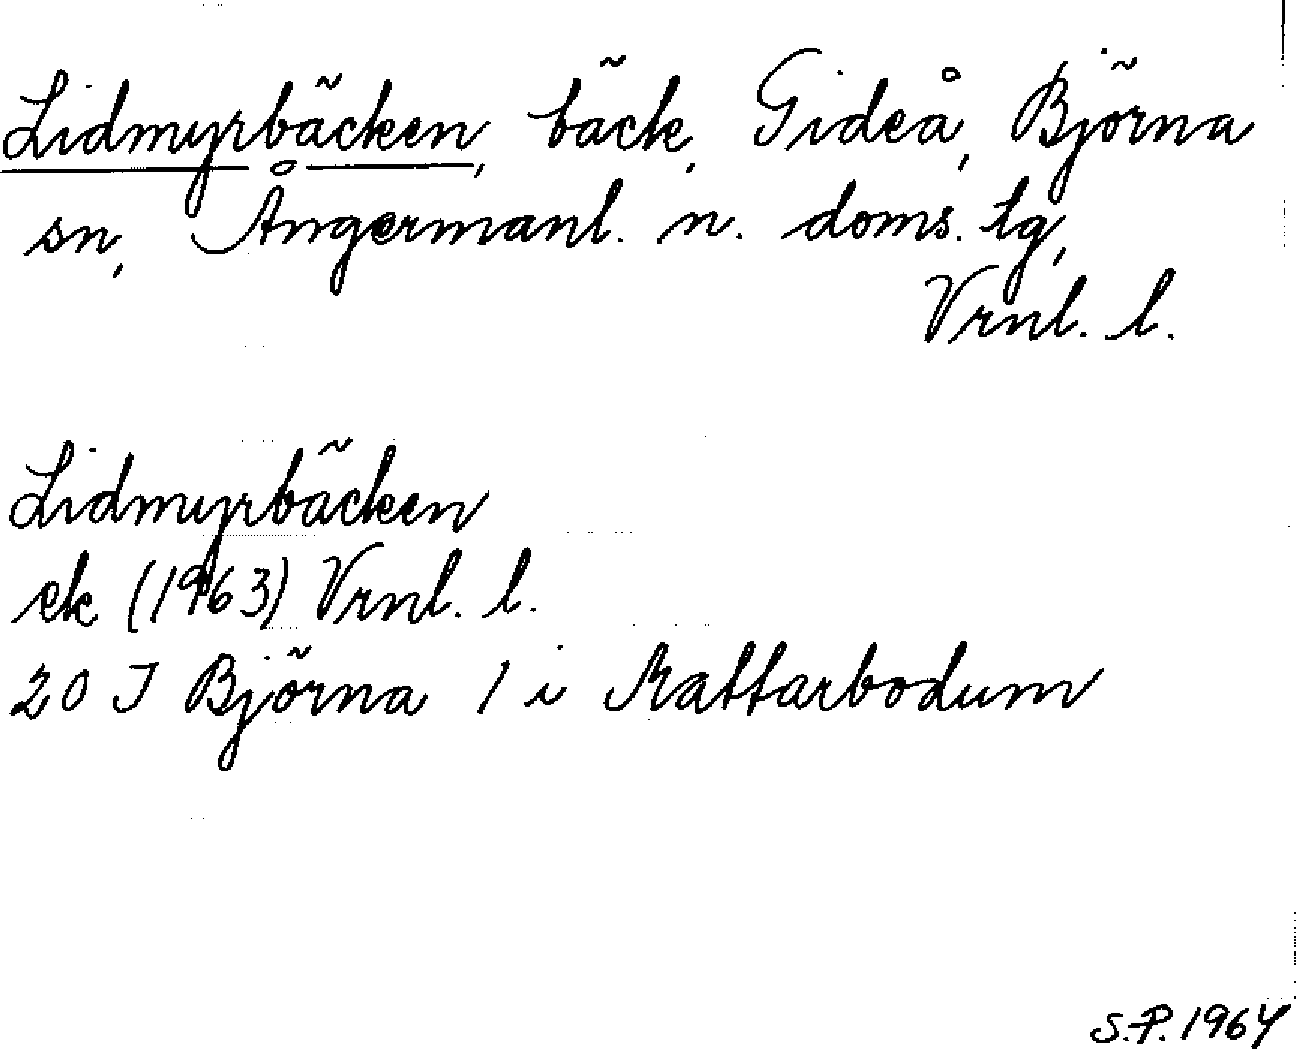 Lidmyrbäcken, bäck, Gideå, Björna
sn, Ångermanl. n. doms. tg,
Vrnl. l.
Lidmyrbäcken
ek (1963) Vrnl. l.
20 I Björna 1 i Kattarbodum
S.P. 1964